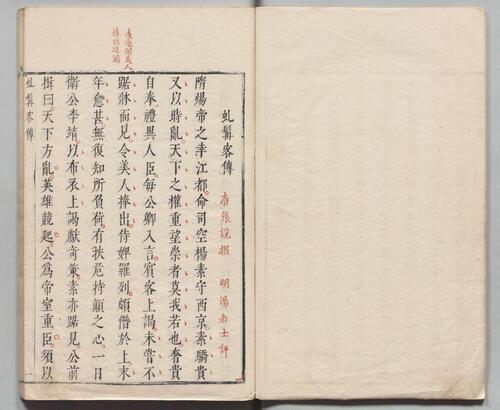 虬髯客傳
唐張說撰 明湯若士評
隋煬帝之幸江都命司空楊素守西京素驕貴
又以時亂天下之權重望崇者莫我若也奢貴
自奉禮異人臣每公卿入言賓客上謁未嘗不
踞牀而見令美人捧出侍婢羅列頗僭於上末
年愈甚無復知所負荷有扶危持顛之心一日
衛公李靖以布衣上謁獻奇策素亦踞見公前
揖曰天下方亂英雄競起公爲帝室重臣須以
虬髯客傳 一